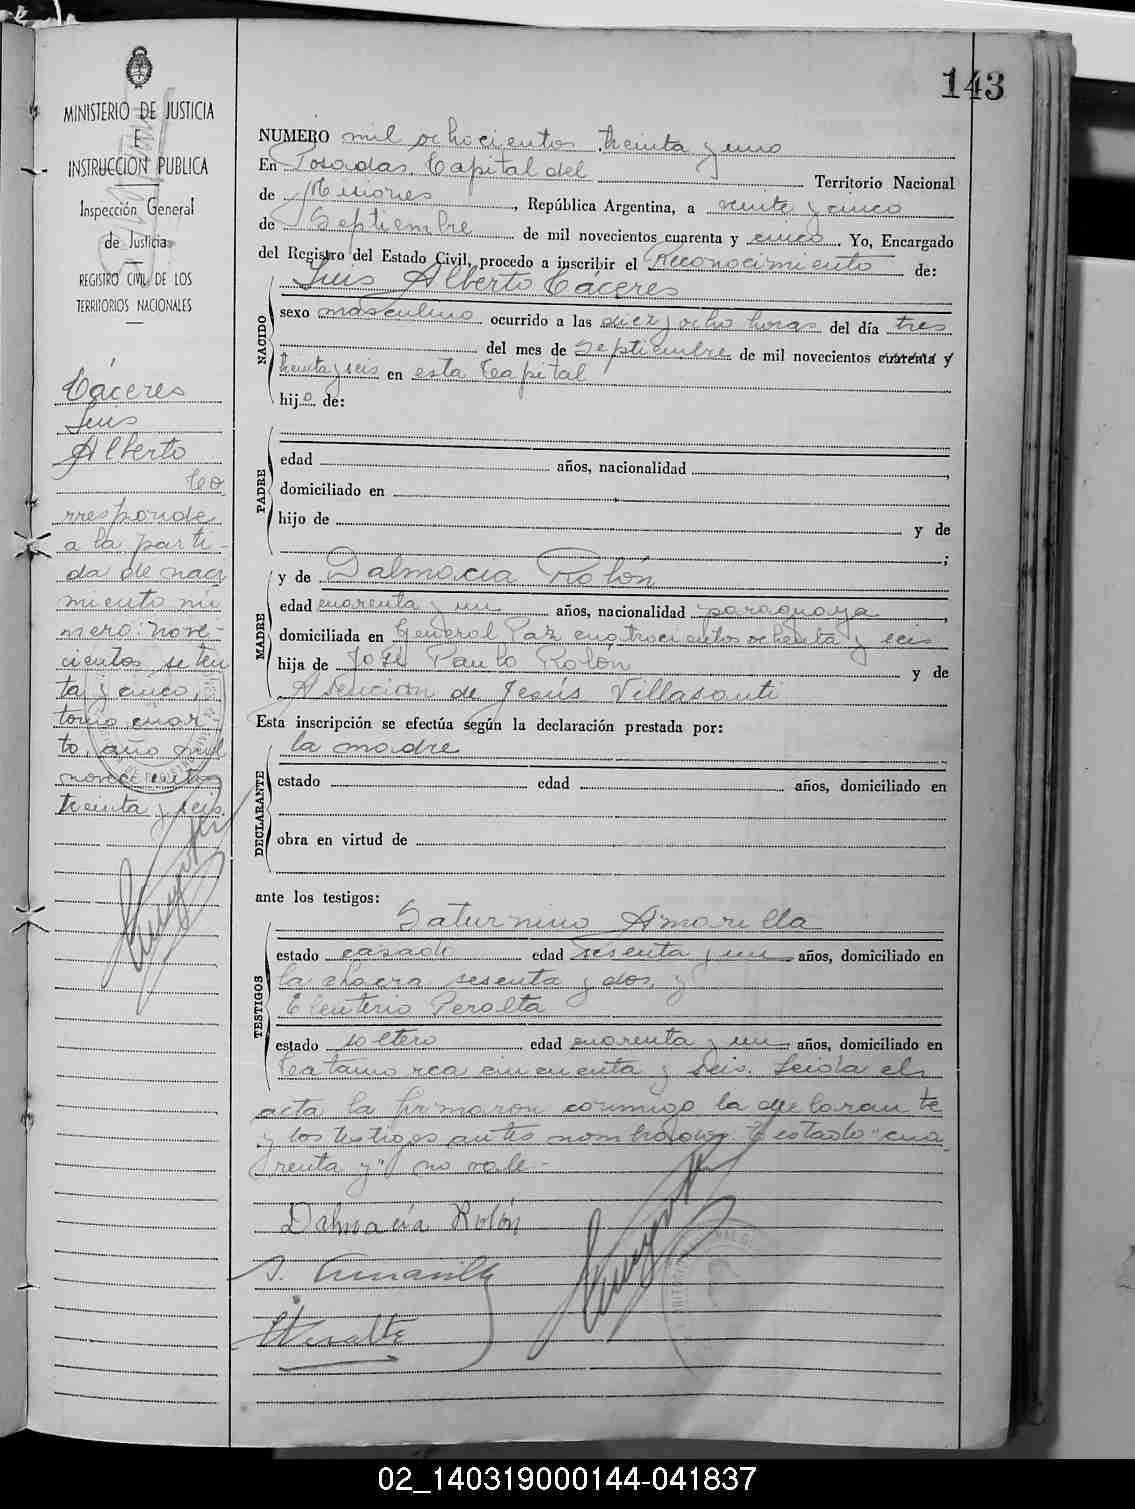 143
MINISTERIO DE JUSTICIA
E
INSTRUCCION PUBLICA
Inspección General
de Justicia
REGISTRO CIVIL DE LOS
TERRITORIOS NACIONALES
Cáceres
Luis
Alberto
Co
rresponde
a la parti-
da de naci
miento nú
mero nove-
cientos seten
ta y cinco,
tomo cuar-
to, año mil
novecientos
treinta y seis.
NUMERO mil ochocientos treinta y uno
En Posadas, Capital del Territorio Nacional
de Misiones, República Argentina, a veinte y cinco
de Septiembre de mil novecientos cuarenta y cinco. Yo, Encargado
del Registro del Estado Civil, procedo a inscribir el Reconocimiento de:
NACIDO
Luis Alberto Cáceres
sexo masculino ocurrido a las diez y ocho horas del día tres
del mes de Septiembre de mil novecientos cuarenta y
treinta y seis en esta Capital
hijo de:
PADRE
edad años, nacionalidad ,
domiciliado en
hijo de y de
;
MADRE
y de Dalmacia Rolón
edad cuarenta y un años, nacionalidad paraguaya,
domiciliada en General Paz cuatrocientos ochenta y seis
hija de José Paulo Rolón y de
Asención de Jesús Villasanti
Esta inscripción se efectúa según la declaración prestada por:
DECLARANTE
la madre
estado edad años, domiciliado en
obra en virtud de
ante los testigos:
TESTIGOS
Saturnino Amarilla
estado casado edad sesenta y un años, domiciliado en
la chacra sesenta y dos, y
Eleuterio Peralta
estado soltero edad cuarenta y un años, domiciliado en
Catamarca cincuenta y seis. Leída el
acta la firmaron conmigo la declarante
y los testigos antes nombrados. Testado "cua
renta y" no vale-
Dalmacia Rolón
S. Amarilla
EPeralta
02_140319000144-041837